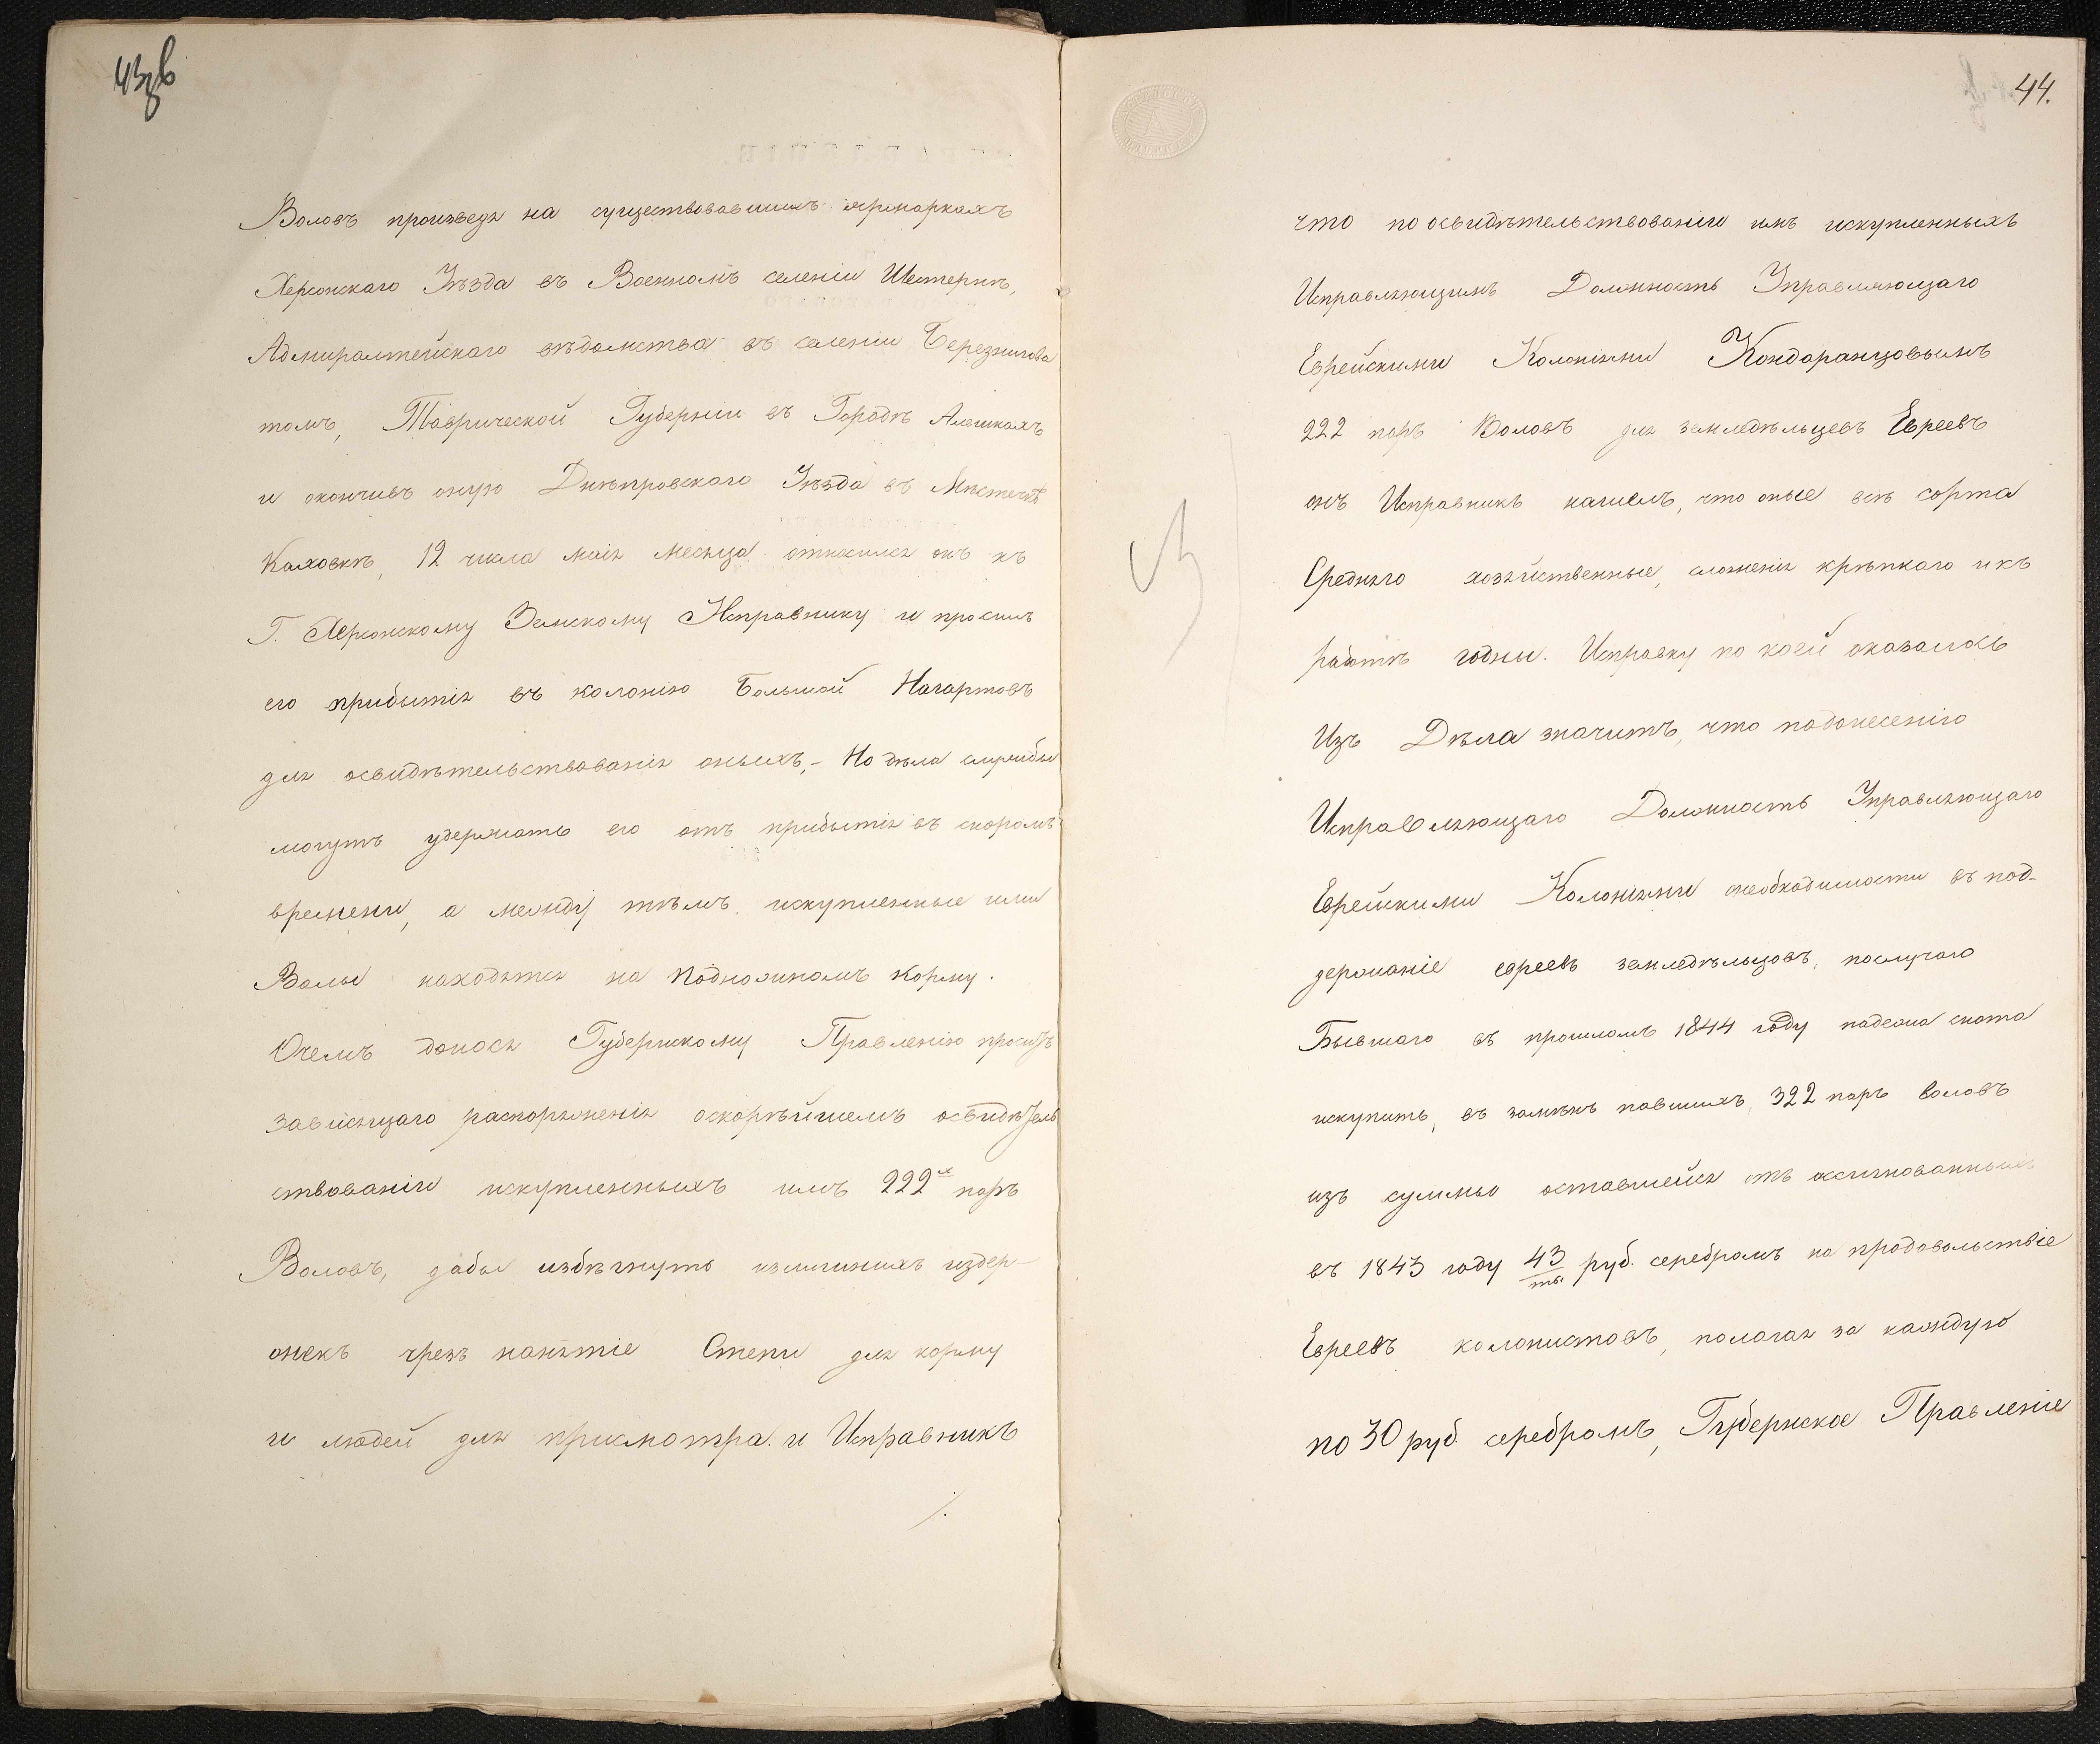 43об
Воловъ произведя на существовавшихъ ярмаркахъ
Херсонскаго Уѣзда въ Военномъ селеніи Шестернѣ,
Адмиралтейскаго вѣдомства въ селеніи Березнигова
томъ, Таврической Губерніи въ Городѣ Алешкахъ
и окончивъ оную Днѣпровскаго Уѣзда въ Мѣстечкѣ
Каховкѣ, 12 числа маія месяца относился онъ къ
Г. Херсонскому Земскому Исправнику и просилъ
его прибытія въ колонію Большой Нагартовъ
для освидѣтельствованія оныхъ,- Но дѣла службы
могутъ удержать его отъ прибытія въ скоромъ
времени, а между тѣмъ искупленные ими
Волы находятся на Подножномъ корму.
Очемъ донося Губернскому Правленію проситъ
зависящаго распоряженія оскорѣйшемъ освидѣтель
ствованіи искупленныхъ имъ 222х паръ
Воловъ, дабы избѣгнуть излишнихъ издер-
жекъ чрезъ нанятіе Степи для корму
и людей для присмотра. и Исправникъ
/.
44.
что по освидѣтельствованіи имъ искупленныхъ
Исправляющимъ Должность Управляющаго
Еврейскими Колоніями Кондоранцовымъ
222 паръ Воловъ для земледѣльцевъ Евреевъ
онъ Исправникъ нашелъ, что оные всѣ сорта
Средняго хозяйственные, сложенія крѣпкаго и къ
работѣ годны. Исправку по коей оказалось
Изъ Дѣла значитъ, что подонесенію
Исправляющаго Должность Управляющаго
Еврейскими Колоніями онеобходимости въ под-
держаніе евреевъ земледѣльцовъ, послучаю
Бывшаго въ прошломъ 1844 году падежа скота
искупить, въ замѣнъ павшихъ, 322 паръ воловъ
изъ суммы оставшейся отъ ассигнованныхъ
въ 1843 году 43 руб. серебромъ на продовольствіе
тыс
Евреевъ колонистовъ, полагая за каждую
по 30 руб. серебромъ, Губернское Правленіе